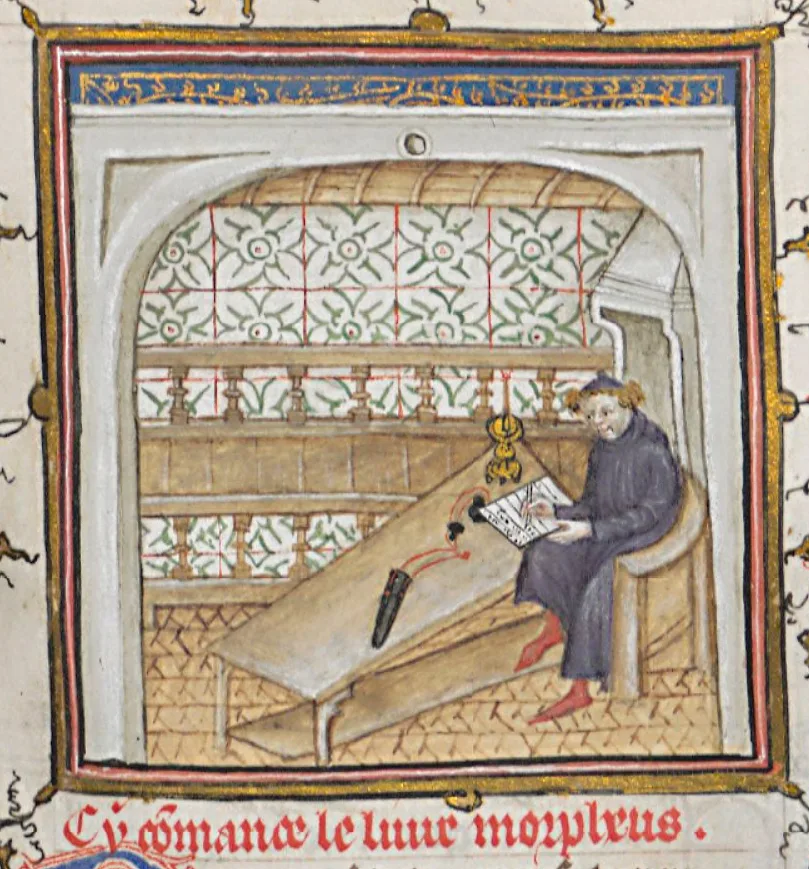 Cy cōmance le liure morpheus .